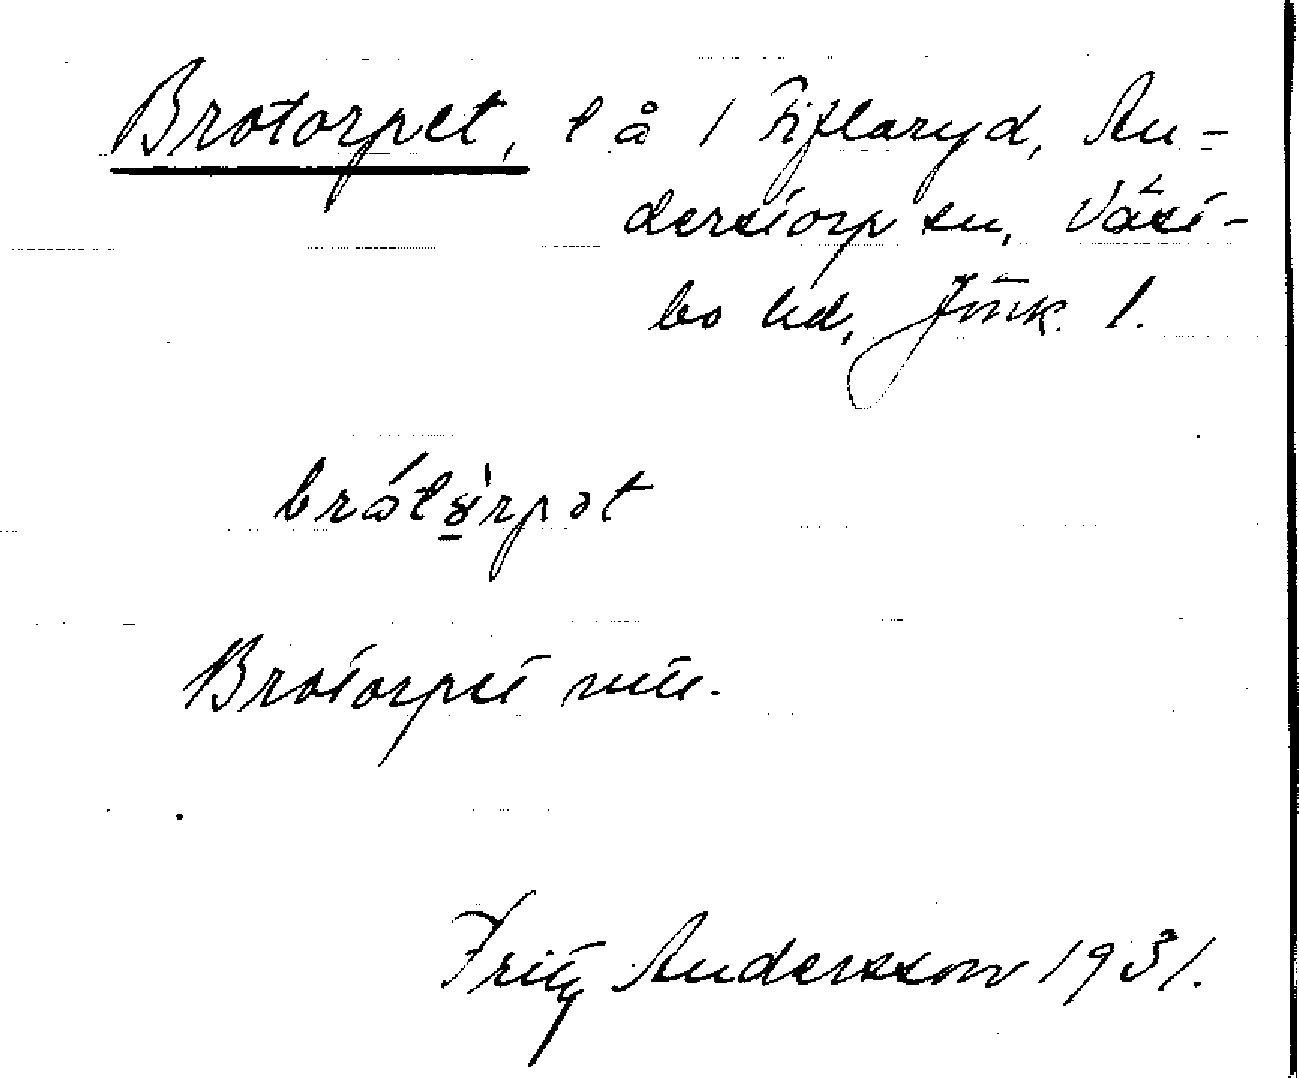 Brotorpet, t å 1 Fiflaryd, An-
derstorp sn, Väst-
bo hd, Jönk. l.
Brotorpet
Fritz Andersson 1931.